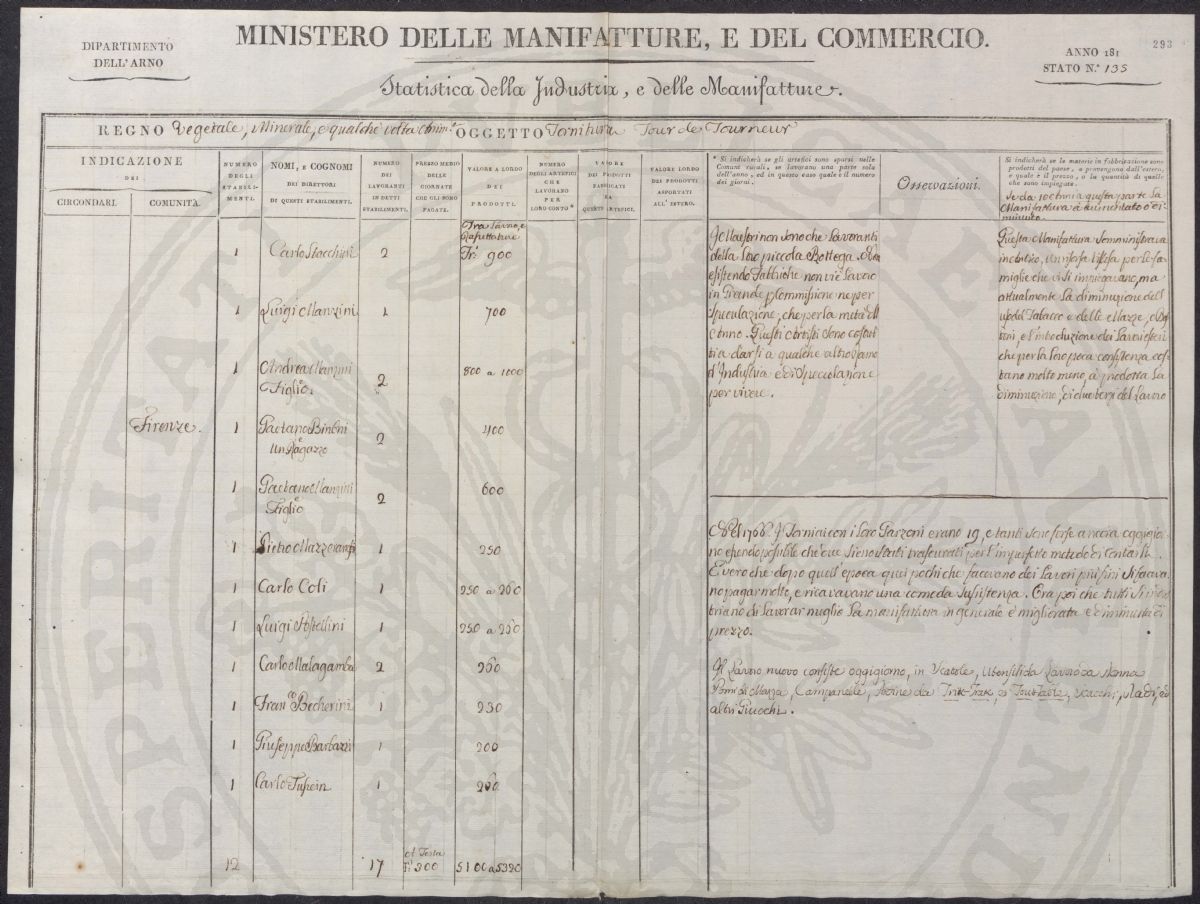 DIPARTIMENTO
DELL'ARNO
MINISTERO DELLE MANIFATTURE, E DEL COMMERCIO.
293
ANNO 181
STATO N.° 135
Statistica della Industria, e delle Manifatture.
REGNO Vegetale, Minerale, e qualche volta OGGETTO Tornitura Tour de Tourneur
INDICAZIONE
DEI
CIRCONDARI. COMUNITÀ.
NUMERO
DEGLI
STABILI-
MENTI.
NOMI, E COGNOMI
DEI DIRETTORI
DI QUESTI STABILIMENTI.
NUMERO
DEI
LAVORANTI
IN DETTI
STABILIMENTI.
PREZZO MEDIO
DELLE
GIORNATE
CHE GLI SONO
PAGATE.
VALORE A LORDO
DEI
PRODOTTI.
NUMERO
DEGLI ARTEFICI
CHE
LAVORANO
PER
LORO CONTO*
VALORE
DEI PRODOTTI
FABBRICATI
DA
QUESTI ARTEFICI.
VALORE LORDO
DEI PRODOTTI
ASPORTATI
ALL' ESTERO.
* Si indicherà se gli artefici sono sparsi nelle
Comuni rurali, se lavorano una parte sola
dell'anno, ed in questo caso quale è il numero
dei giorni.
Osservazioni.
Si indicherà se le materie in fabbricazione sono
prodotti del paese, o provengono dall'estero,
e quale è il prezzo, o la quantità di quelle
che sono impiegate.
Se da 10 Anni a questa parte la
Manifattura è aumentata o di-
minuita.
Fra Lavoro, e
Rassettature
1 Carlo Stocchi 2 Fr. 900
1 Luigi Manzini 1 700
1 Andrea Manzini
e Figlio. 2 800 a 1000
Firenze. 1 Gaetano Binoni
e
un Ragazzo 2 400
1 Gaetano Manzini
e
Figlio 2 600
1 Pietro 1 250
1 Carlo Coli 1 250 a 260
1 Luigi 1 250 a 260
1 Carlo Malagamba 2 260
1 Fran.co Becherini 1 230
1 Giuseppe Barbazzi 1 200
1 Carlo 1 200
12 17 A Testa
Fr. 300 5100 a 5320
I Maestri non sono che Lavoranti
della loro piccola Bottega. Non
esistendo Fabbriche non vi è Lavoro
in Grande p. Commissione ne per
Speculazione, che per la metà dell'
Anno. Questi Artisti sono costret
ti a darsi a qualche altro ramo
d'Industria e di Speculazione
per vivere.
Questa Manifattura somministrava
in addietro, un risorsa estesa per le fa-
miglie che vi si impiegavano, ma
attualmente la diminuzione dell'
uso del Tabacco e delle Mazze, e Bot
toni, e l'introduzione dei Lavori esteri
che per la loro poca consistenza cos-
tano molto meno, à prodotta la
diminuzione, di due terzi del Lavoro
1766. I Torniai con i loro Garzoni erano 19, e tanti sono forse ancora oggigior
no essendo possibile che due siano stati trascurati per l'imperfetto metodo di contarli.
E vero che dopo quell'epoca quei pochi che facevano dei Lavori più fini si faceva
no pagar molto, e ricavavano una comoda sussistenza. Ora poi che tutti si indus
triano di lavorar meglio la manifattura in generale è migliorata e diminuita di
prezzo.
Il Lavoro nuovo consiste oggigiorno, in Scatole, Utensili da Lavoro da Donna
Pomi di Mazza, Campanelle, da Trik-Trak, e Toutetable, Scacchi, Dadi, ed
altri Giuochi.